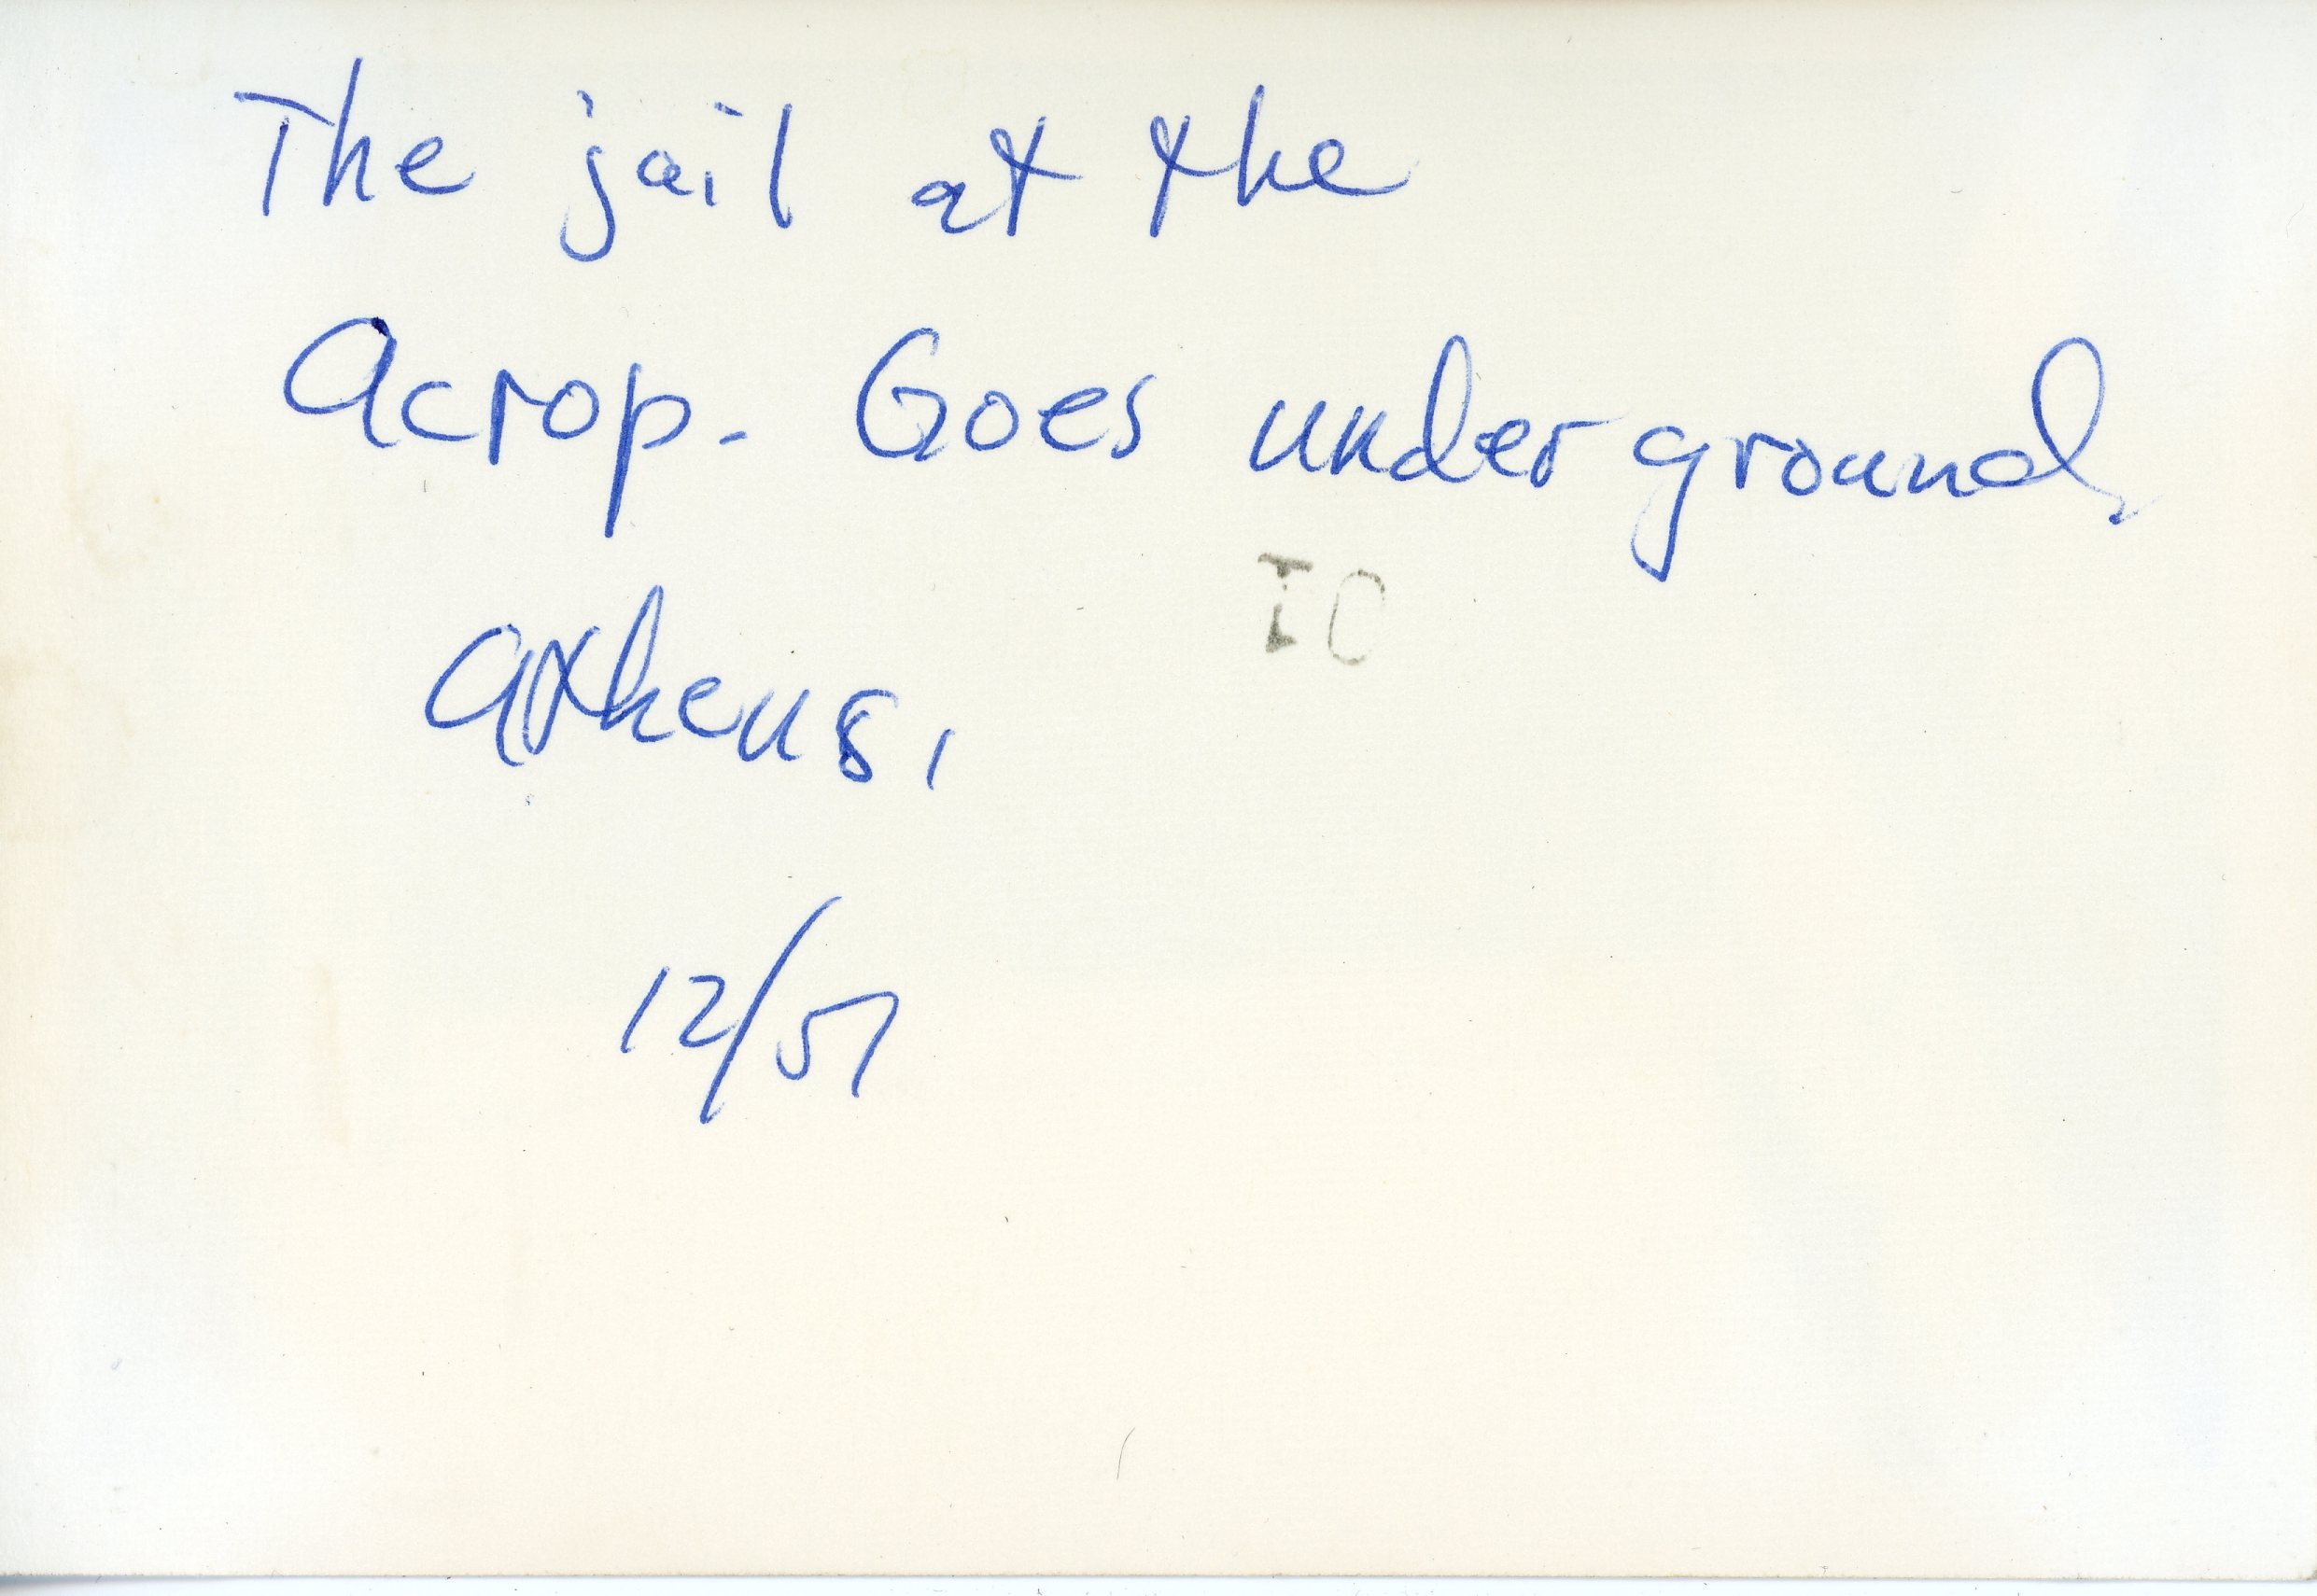 The jail at the
Acrop. Goes underground,
Athens,
12/51